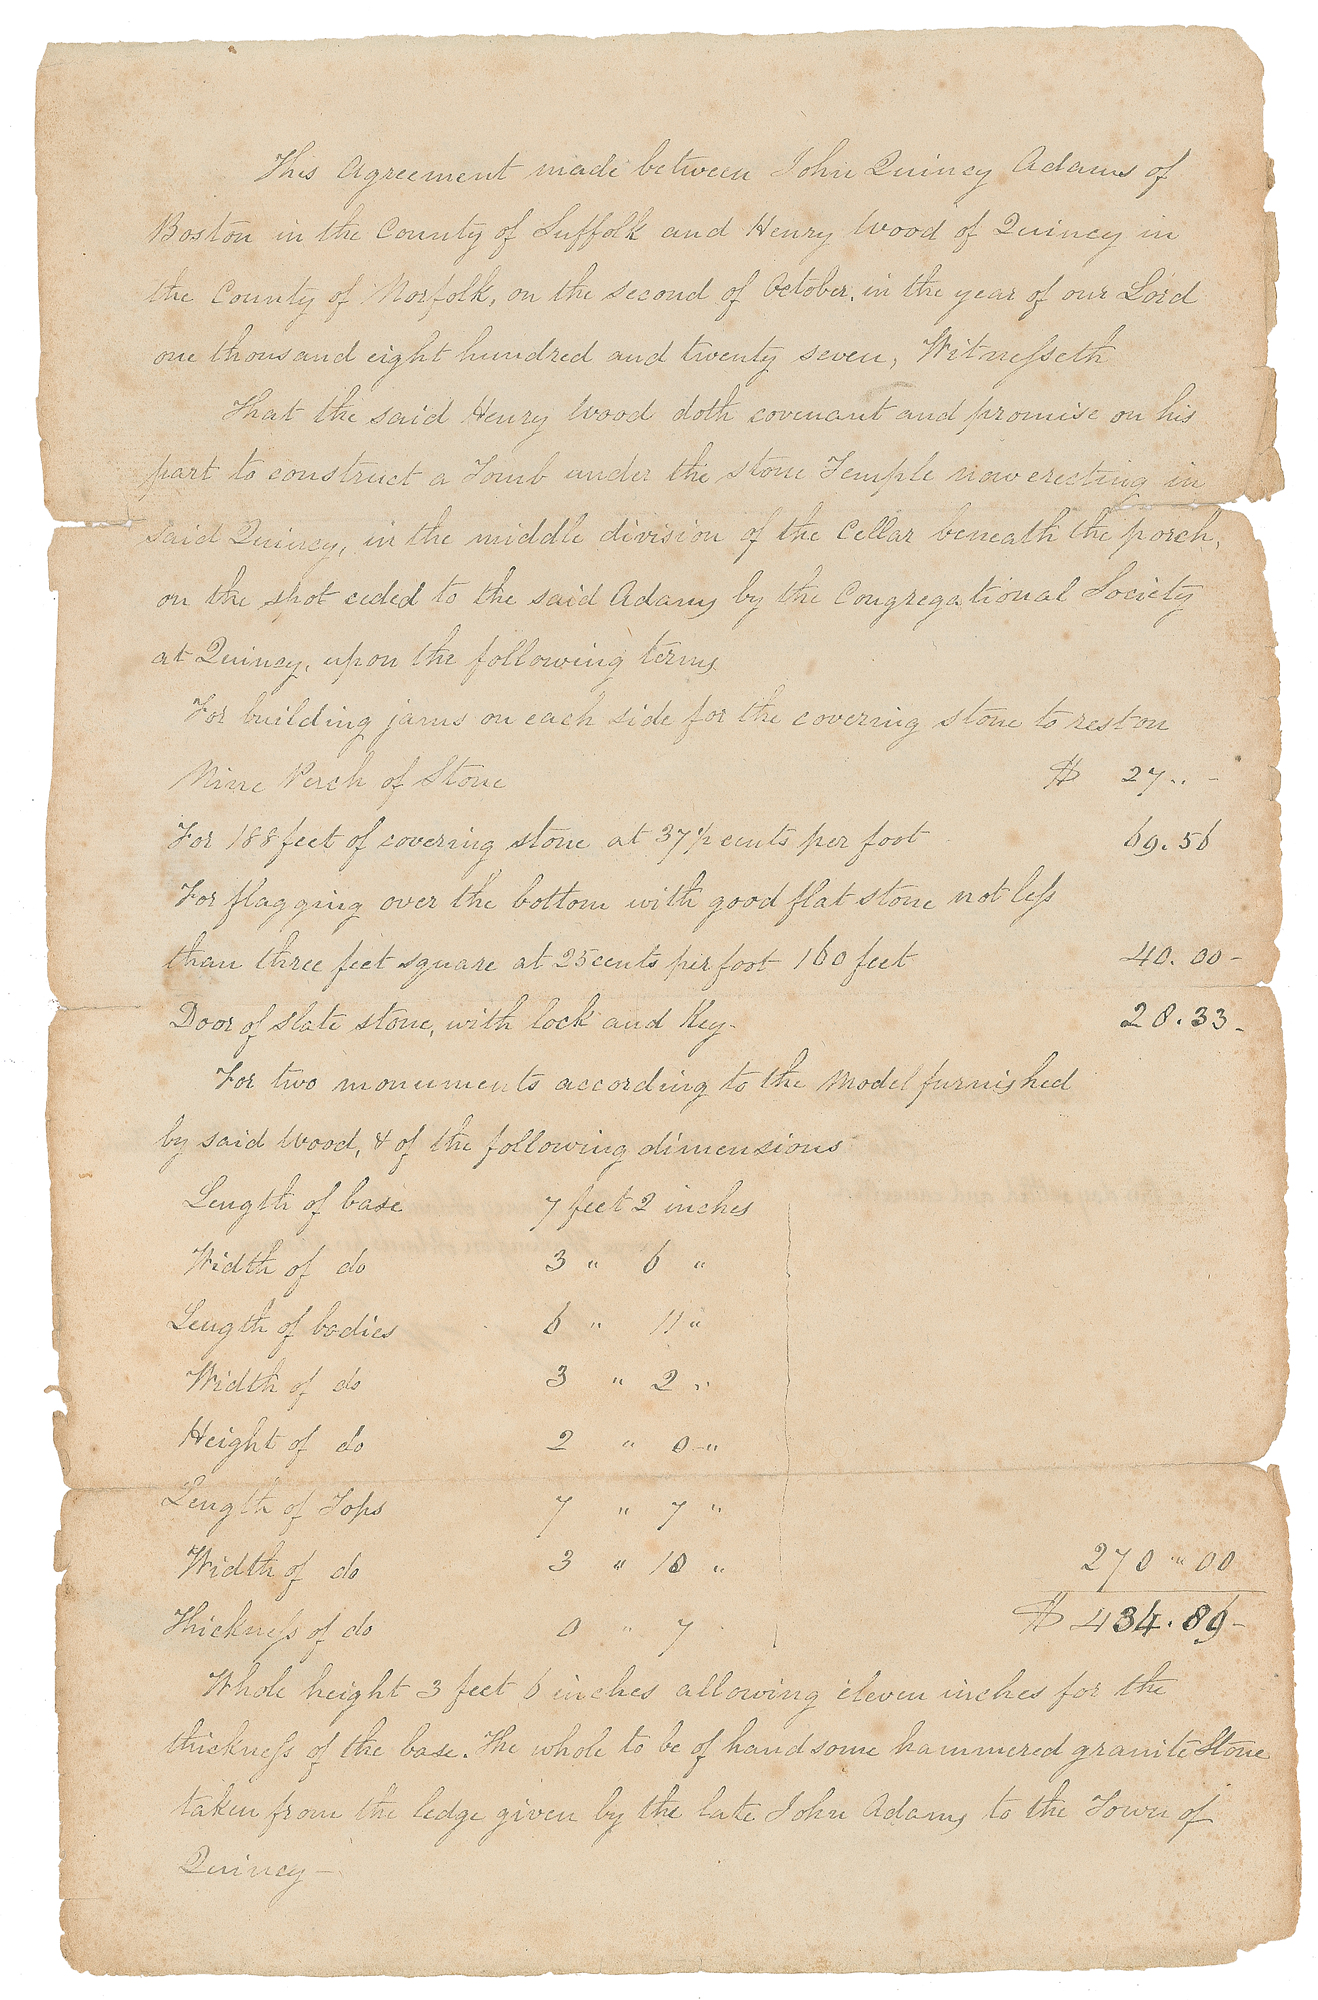 This Agreement made between John Quincy Adams of
Boston in the County of Suffolk and Henry Wood of Quincy in
the County of Norfolk, on the second of October, in the year of our Lord
one thousand eight hundred and twenty seven, Witnesseth
That the said Henry Wood doth covenant and promise on his
part to construct a Tomb under the stone Temple now erecting in
said Quincy, in the middle division of the Cellar beneath the porch,
on the shot ceded to the said Adams by the Congregational Society
at Quincy, upon the following terms
For building jams on each side for the covering stone to rest on
Nine Perch of Stone $ 27.. -
For 188 feet of covering stone at 37 1/2 cents per foot 69.56
For flagging over the bottom with good flat stone not less
than three feet square at 25 cents per foot 160 feet 40.00-
Door of slate stone, with lock and Key- 28.33-
For two monuments according to the Model furnished
by said Wood, & of the following dimensions
Length of base 7 feet 2 inches
Width of do 3 " 6 "
Length of bodies 6 " 11 "
Width of do 3 " 2 "
Height of do 2 " 0 - "
Length of Tops 7 " 7 "
Width of do 3 " 10 " 270 " 00
Thickness of do 0 " 7 $ 434.89-
Whole height 3 feet 6 inches allowing eleven inches for the
thickness of the base. The whole to be of handsome hammered granite Stone
taken from the ledge given by the late John Adams to the Town of
Quincy-